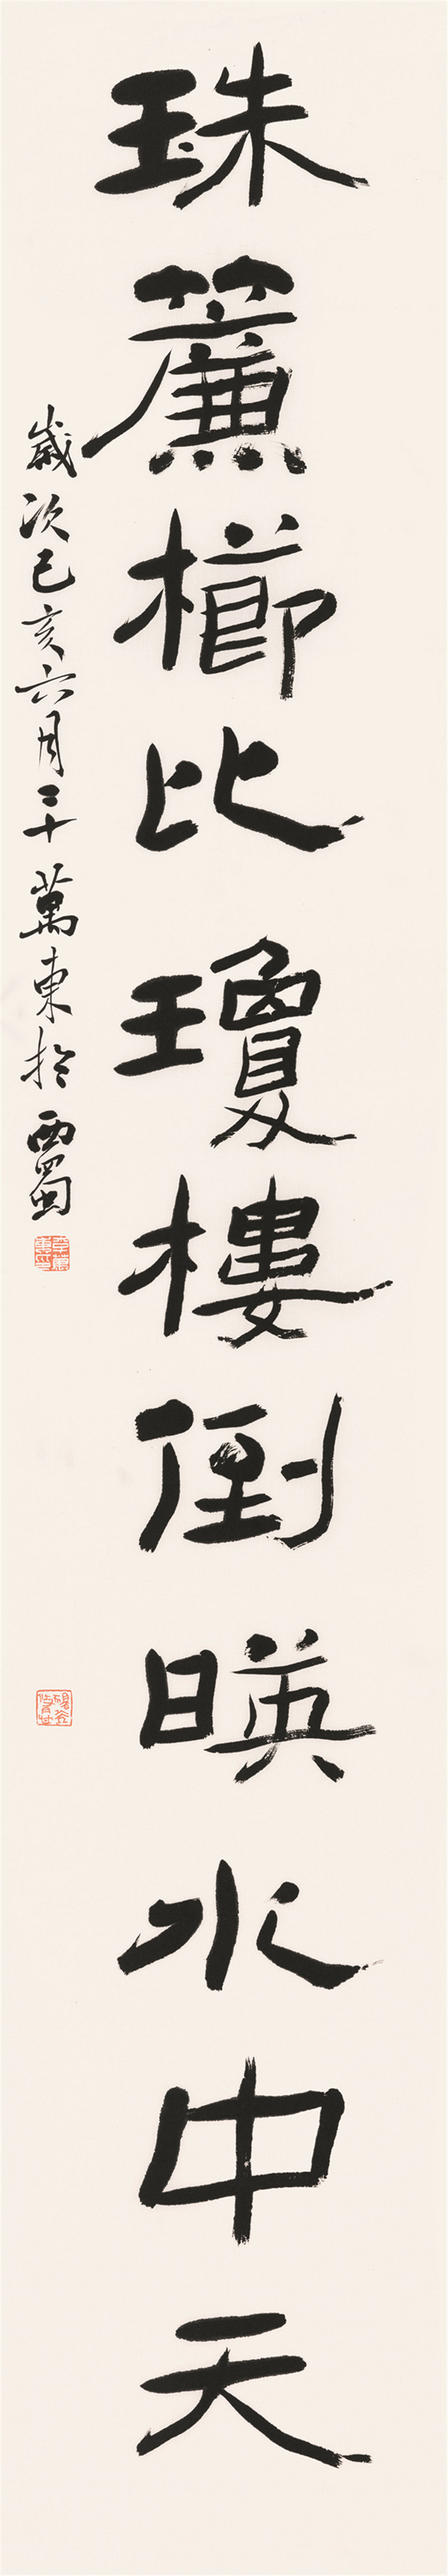 珠簾櫛比瓊樓倒暎水中天
歲次己亥六月三十萬東於西蜀